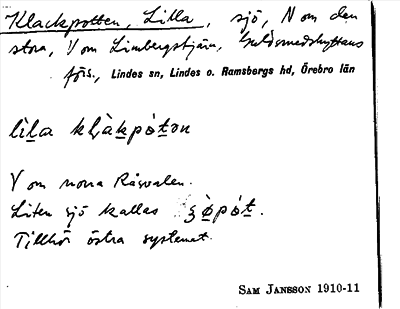 Klackpotten, Lilla, sjö, N om den
stora, V om Limbergstjärn, Guldsmedshyttans
förs., Lindes sn, Lindes o. Ramsbergs hd, Örebro län
lìl̠a kl̥àk̠pót̠ən
V om norra Råsvalen.
Liten sjö kallas ʒø̠̀pót̠.
Tillhör östra systemet.
SAM JANSSON 1910-11